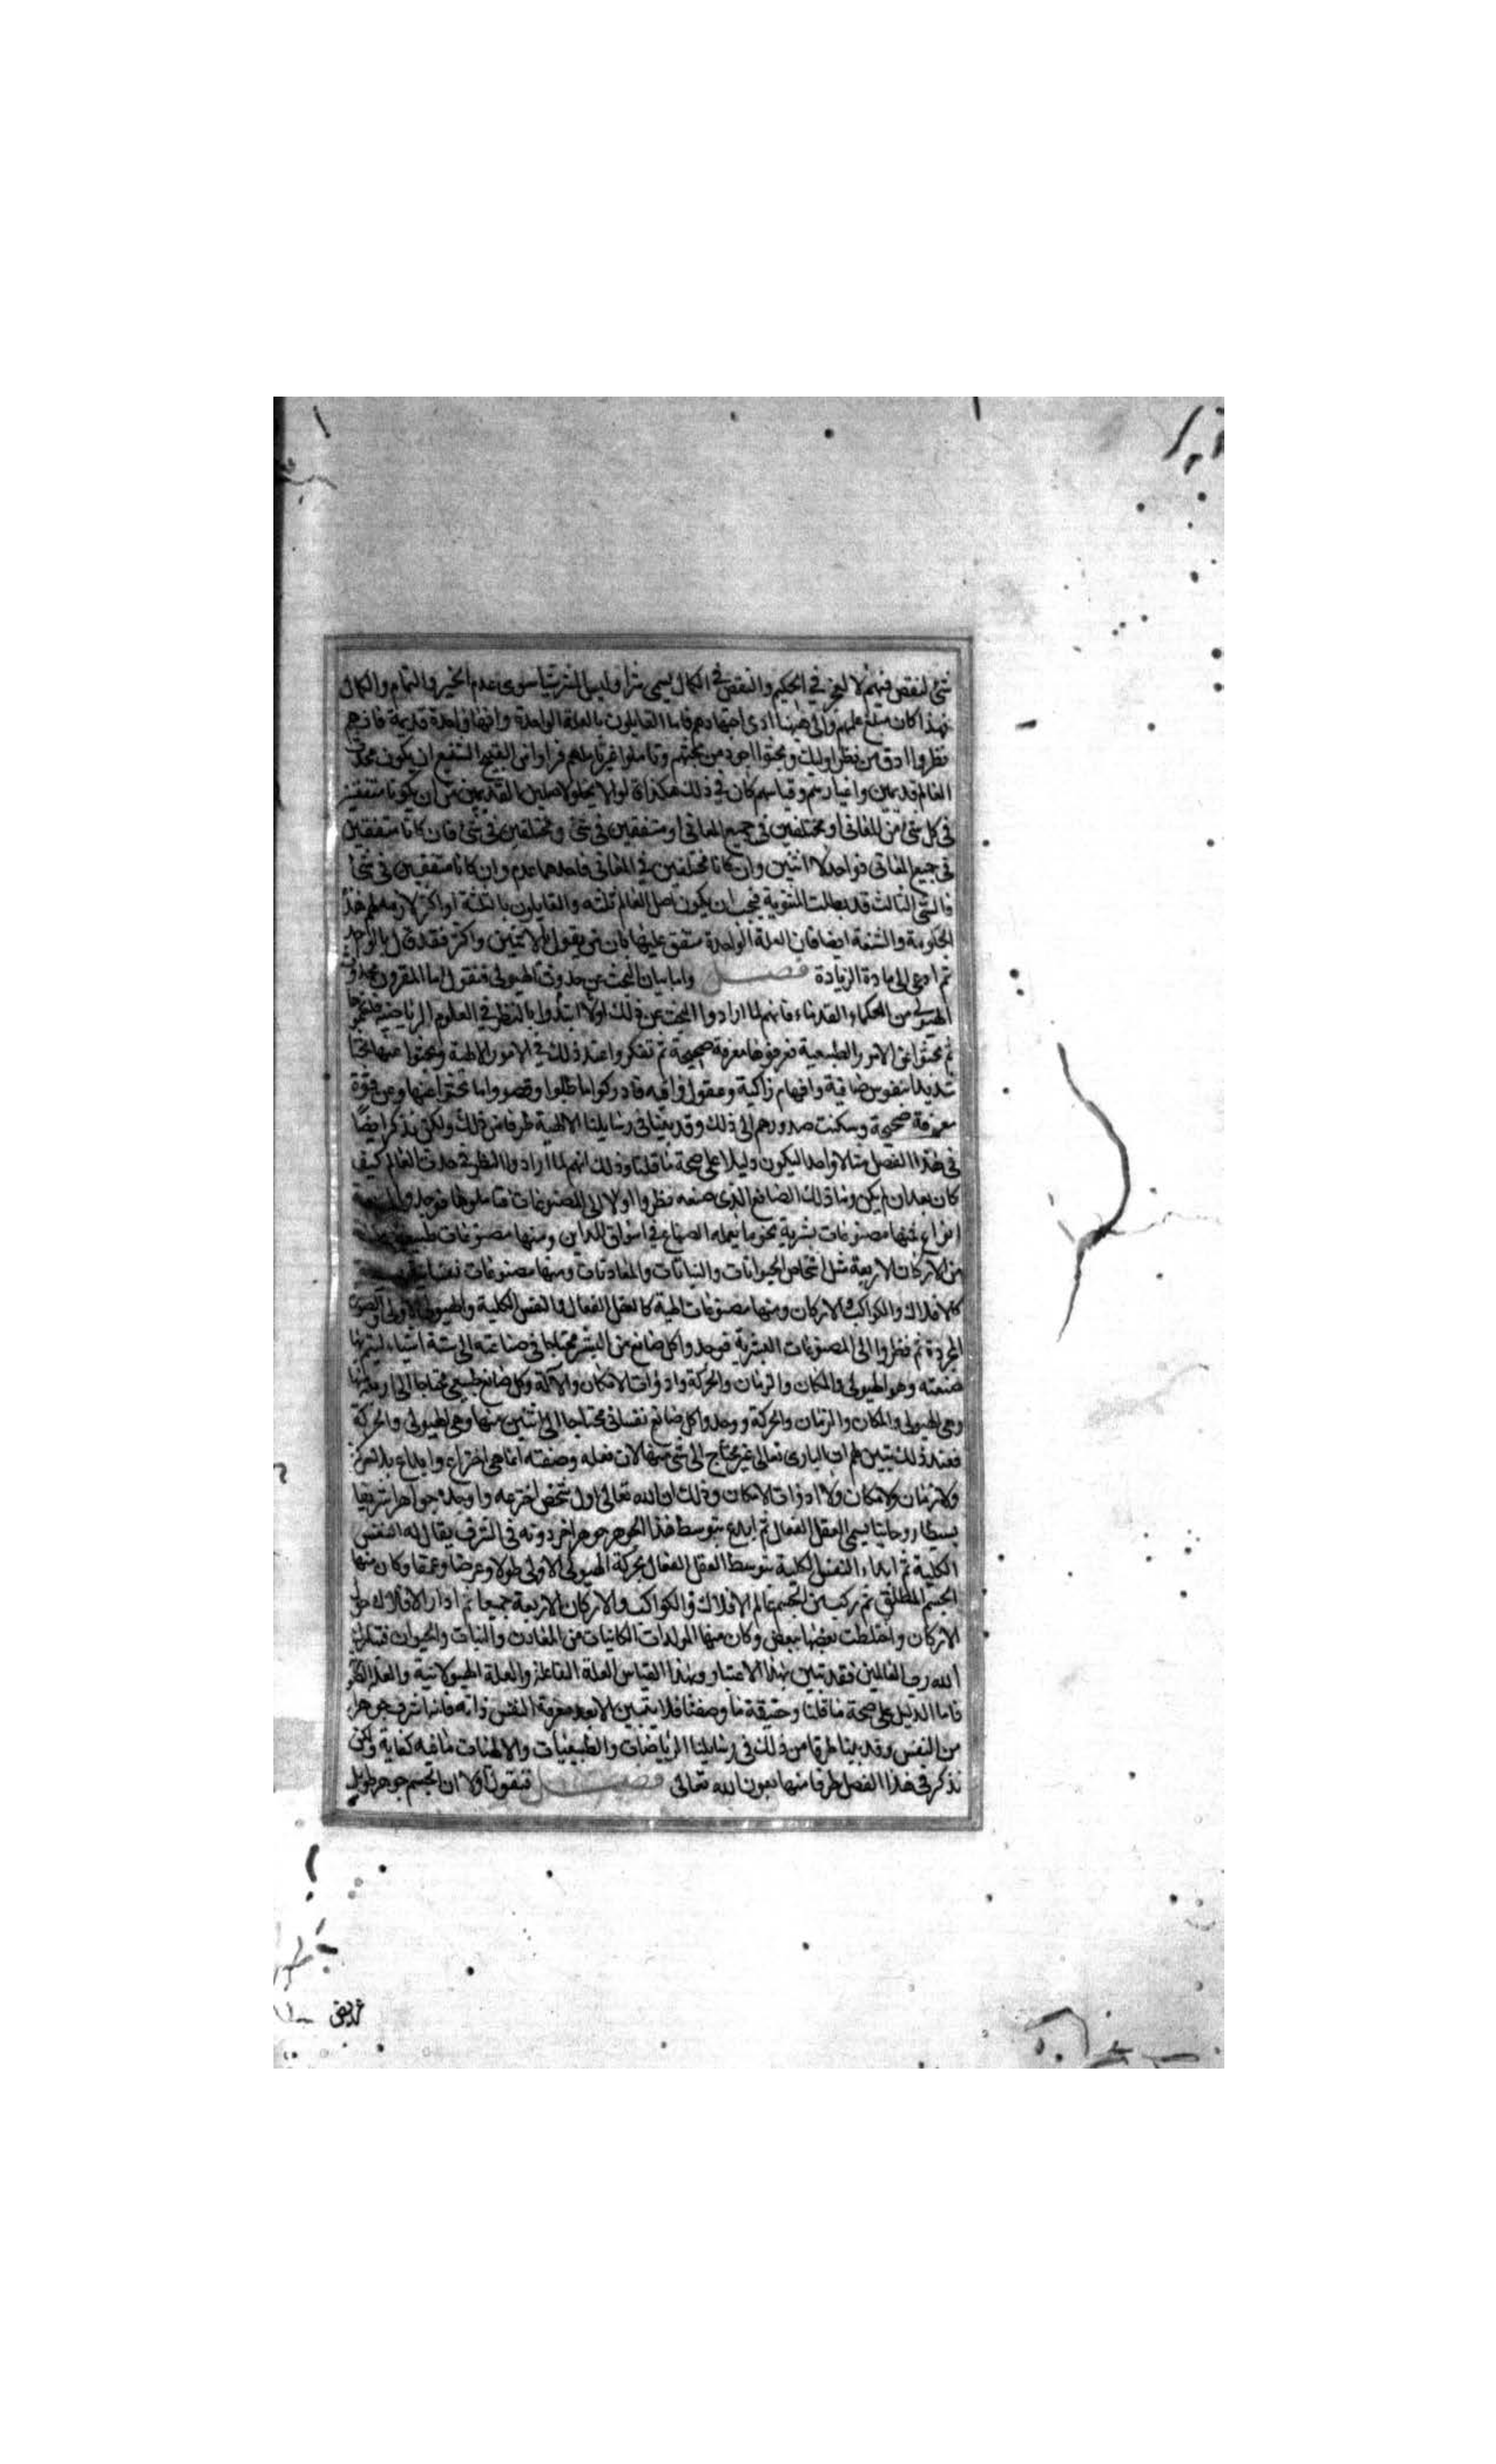 شئ لنقص فيهم لا لعجز في الحكيم والنقص في الكمال يسمى شرا وليس الشر شيئا سوى عدم الخير والتمام والكمال
فهذا كان مبلغ علمهم والى ههنا ادى اجتهادهم فاما القايلون بالعلة الواحدة وانها واحدة قديمة فانهم
نظروا ادق من نظر اوليك وبحثوا اجود من بحثهم وتاملوا غير تاملهم فراوا ان القبيح الشنيع ان يكون محدث
العالم قديمين واعبارتهم وقياسهم كان في ذلك هكذا قالوا لا يخلوا الاصلين القديمين من ان يكونا متفقين
في كل شئ من المعانى او مختلفين في جميع المعانى او متفقين في شئ ومختلفين في شئ فان كانا متفقين
في جميع المعانى فواحد لا اثنين وان كانا مختلفين في المعانى فاحدهما عدم وان كانا متفقين في شئ
فالشئ الثالث قد بطلت الثنوية فيجب ان يكون اصل العالم ثلثه والقايلون بالثلثة او اكثر لازمهم هذه
الحكومة والشنعة ايضا فان العلة الواحدة متفق عليها كان من يقول بالاثنين واكثر فقد قال بالواحد
ثم ادعى الى ما دة الزيادة فصل واما بيان البحث عن حدوث الهيولى فنقول اما المقرون بحدوث
الهيولى من الحكماء القدماء فانهم لما ارادوا البحث عن ذلك اولا ابتدوا بالنظر في العلوم الرياضية
ثم بحثوا عن الامور الطبيعية فعرفوها معرفة صحيحة ثم تفكروا عند ذلك في الامور الالهية وبحثوا عنها بحثا
شديدا بنفوس صافية وافهام زاكية وعقول وافيه فادركوا ما طلبوا وقصدوا ما بحثوا عنها وعرفوه
معرفة صحيحة وسكنت صدورهم الى ذلك وقد بينا في رسايلنا الالهية طرفا من ذلك ولكن نذكر ايضًا
في هذا الفصل مثالا واحدا ليكون دليلا على صحة ما قلنا وذلك انهم لما ارادوا النظر في حدث العالم كيف
كان بعد ان لم يكن وما ذلك الصانع الذى صنعه نظروا اولا الى المصنوعات فتاملوها فوجدوا
انواع فمنها مصنوعات بشرية نحو ما يعمله الصناع في اسواق المداين ومنها مصنوعات طبيعية
من الاركان الاربعة مثل اشخاص الحيوانات والنباتات والمعادنات ومنها مصنوعات نفسانية
كالافلاك والكواكب والاركان ومنها مصنوعات الهية كالعقل الفعال والنفس الكلية والهيولى الاولى والصورة
المجردة ثم نظروا الى المصنوعات البشرية فوجدوا كل صانع من البشر محتاجا في صناعته الى ستة اشياء ليتم بها
صنعته وهو الهيولى والمكان والزمان والحركة وادوات الامكان والآلة وكل صانع طبيعي محتاجا الى اربعة منها
وهي الهيولى والمكان والزمان والحركة ووجدوا كل صانع نفسانى محتاجا الى اثنين منها وهي الهيولى والحركة
فعند ذلك تبين لهم ان البارى تعالى غير محتاج الى شئ منها لان فعله وصنعته انما هي اختراع وابداع بلا حركة
ولا زمان ولا مكان ولا ادوات الامكان وذلك ان الله تعالى اول شخص اخترعه واوجده جوهرا شريفا
بسيطا روحانيا يسمى العقل الفعال ثم ابدع بتوسط هذا الجوهر جوهرا اخر دونه في الشرف يقال له النفس
الكلية ثم ابداء النفس الكلية بتوسط العقل الفعال بحركة الهيولى الاولى طولا وعرضا وعمقا وكان منها
الجسم المطلق ثم ركب من الجسم عالم الافلاك والكواكب والاركان الاربعة جميعا ثم ادار الافلاك حول
الاركان واختلطت بعضها ببعض وكان منها المولدات الكاينات من المعادن والنبات والحيوان فتبارك
الله رب العالمين فقد تبين بهذا الاعتبار وبهذا القياس العلة الفاعلة والعلة الهيولانية والعلة
فاما الدليل على صحة ما قلنا وحقيقة ما وصفنا فلا يتبين الا بعد معرفة النفس ذاته فانها اشرف جوهرا
من النفس وقد بينا طرفا من ذلك في رسايلنا الرياضيات والطبيعيات والالهيات ما فيه كفاية ولكن
نذكر في هذا الفصل طرفا منها بعون الله تعالى فصل فنقول اولا ان الجسم جوهر طويل